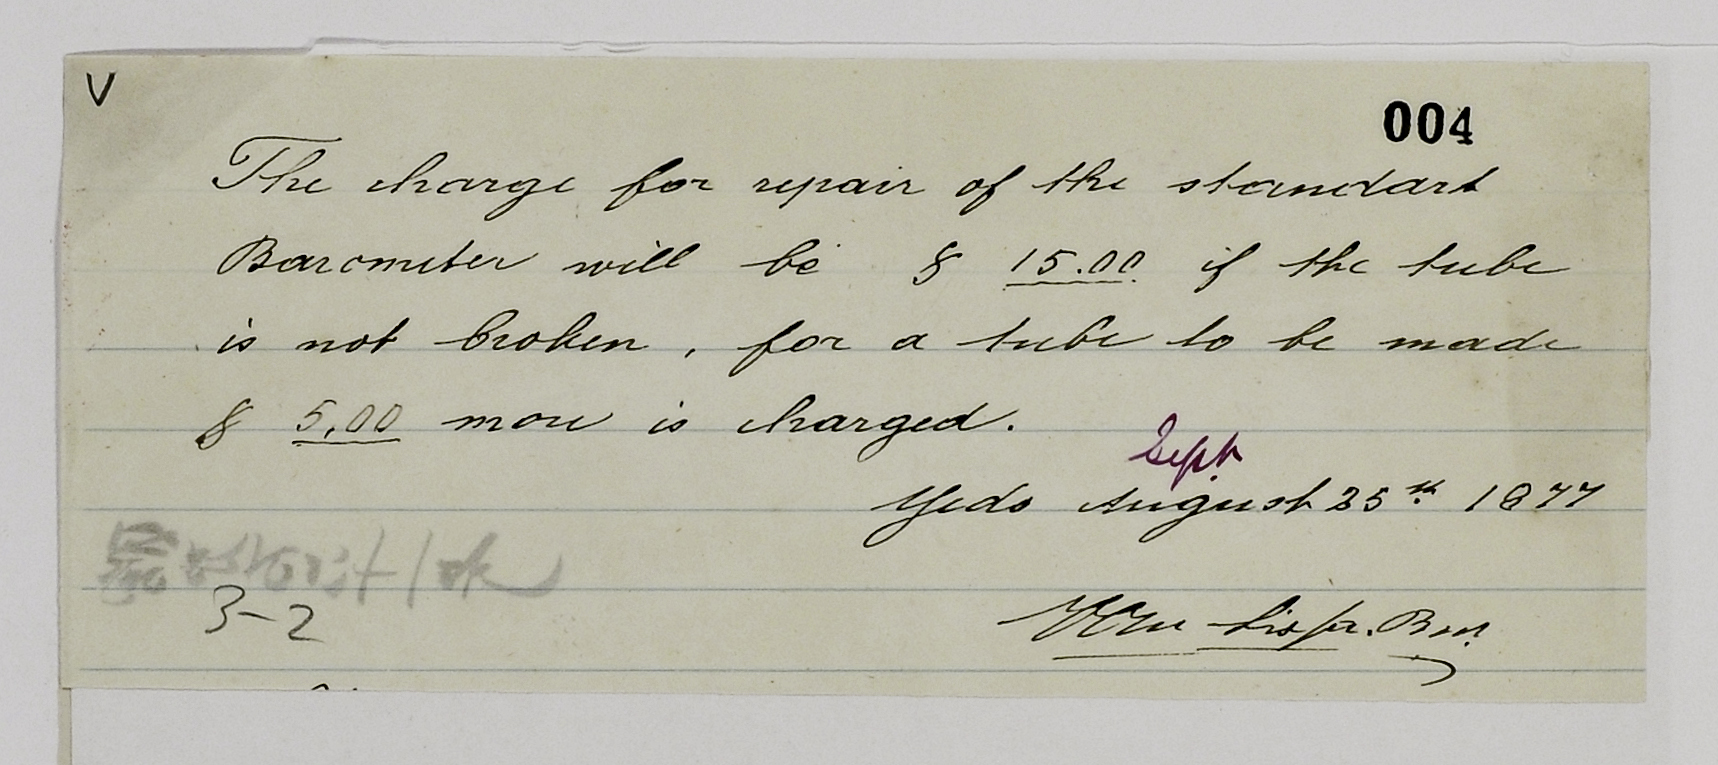 V
004
The charge for repair of the standart
Barometer will be $ 15.00 if the tube
is not broken, for a tube to be made
$ 5,00 more is charged.
Sept.
Yedo August 25th 1877
3-2